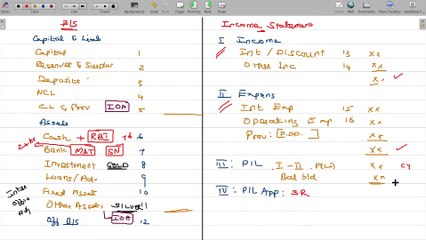 B|S
Capital & Liab
Capital 1
Reserves & Surplus 2
Deposits 3
NCL 4
C.L & Prov IOA 5
Assets
Cash + RBI 6
Bank MAT SN 7
Investment GOLD 8
Loans/Adv 9
Fixed Assets 10
Other Assets SILVER 11
Inter office Adj
IOA
Off B|S 12
Income Statement
I Income
Int / Discount 13 xx
Other Inc 14 xx
xx
II Expens
Int Exp 15 xx
Operating Exp 16 xx
Prov: xx
xx
III: P|L I - II P(L) xx CY
Bal b/d xx
xx
IV: P|L App: SR